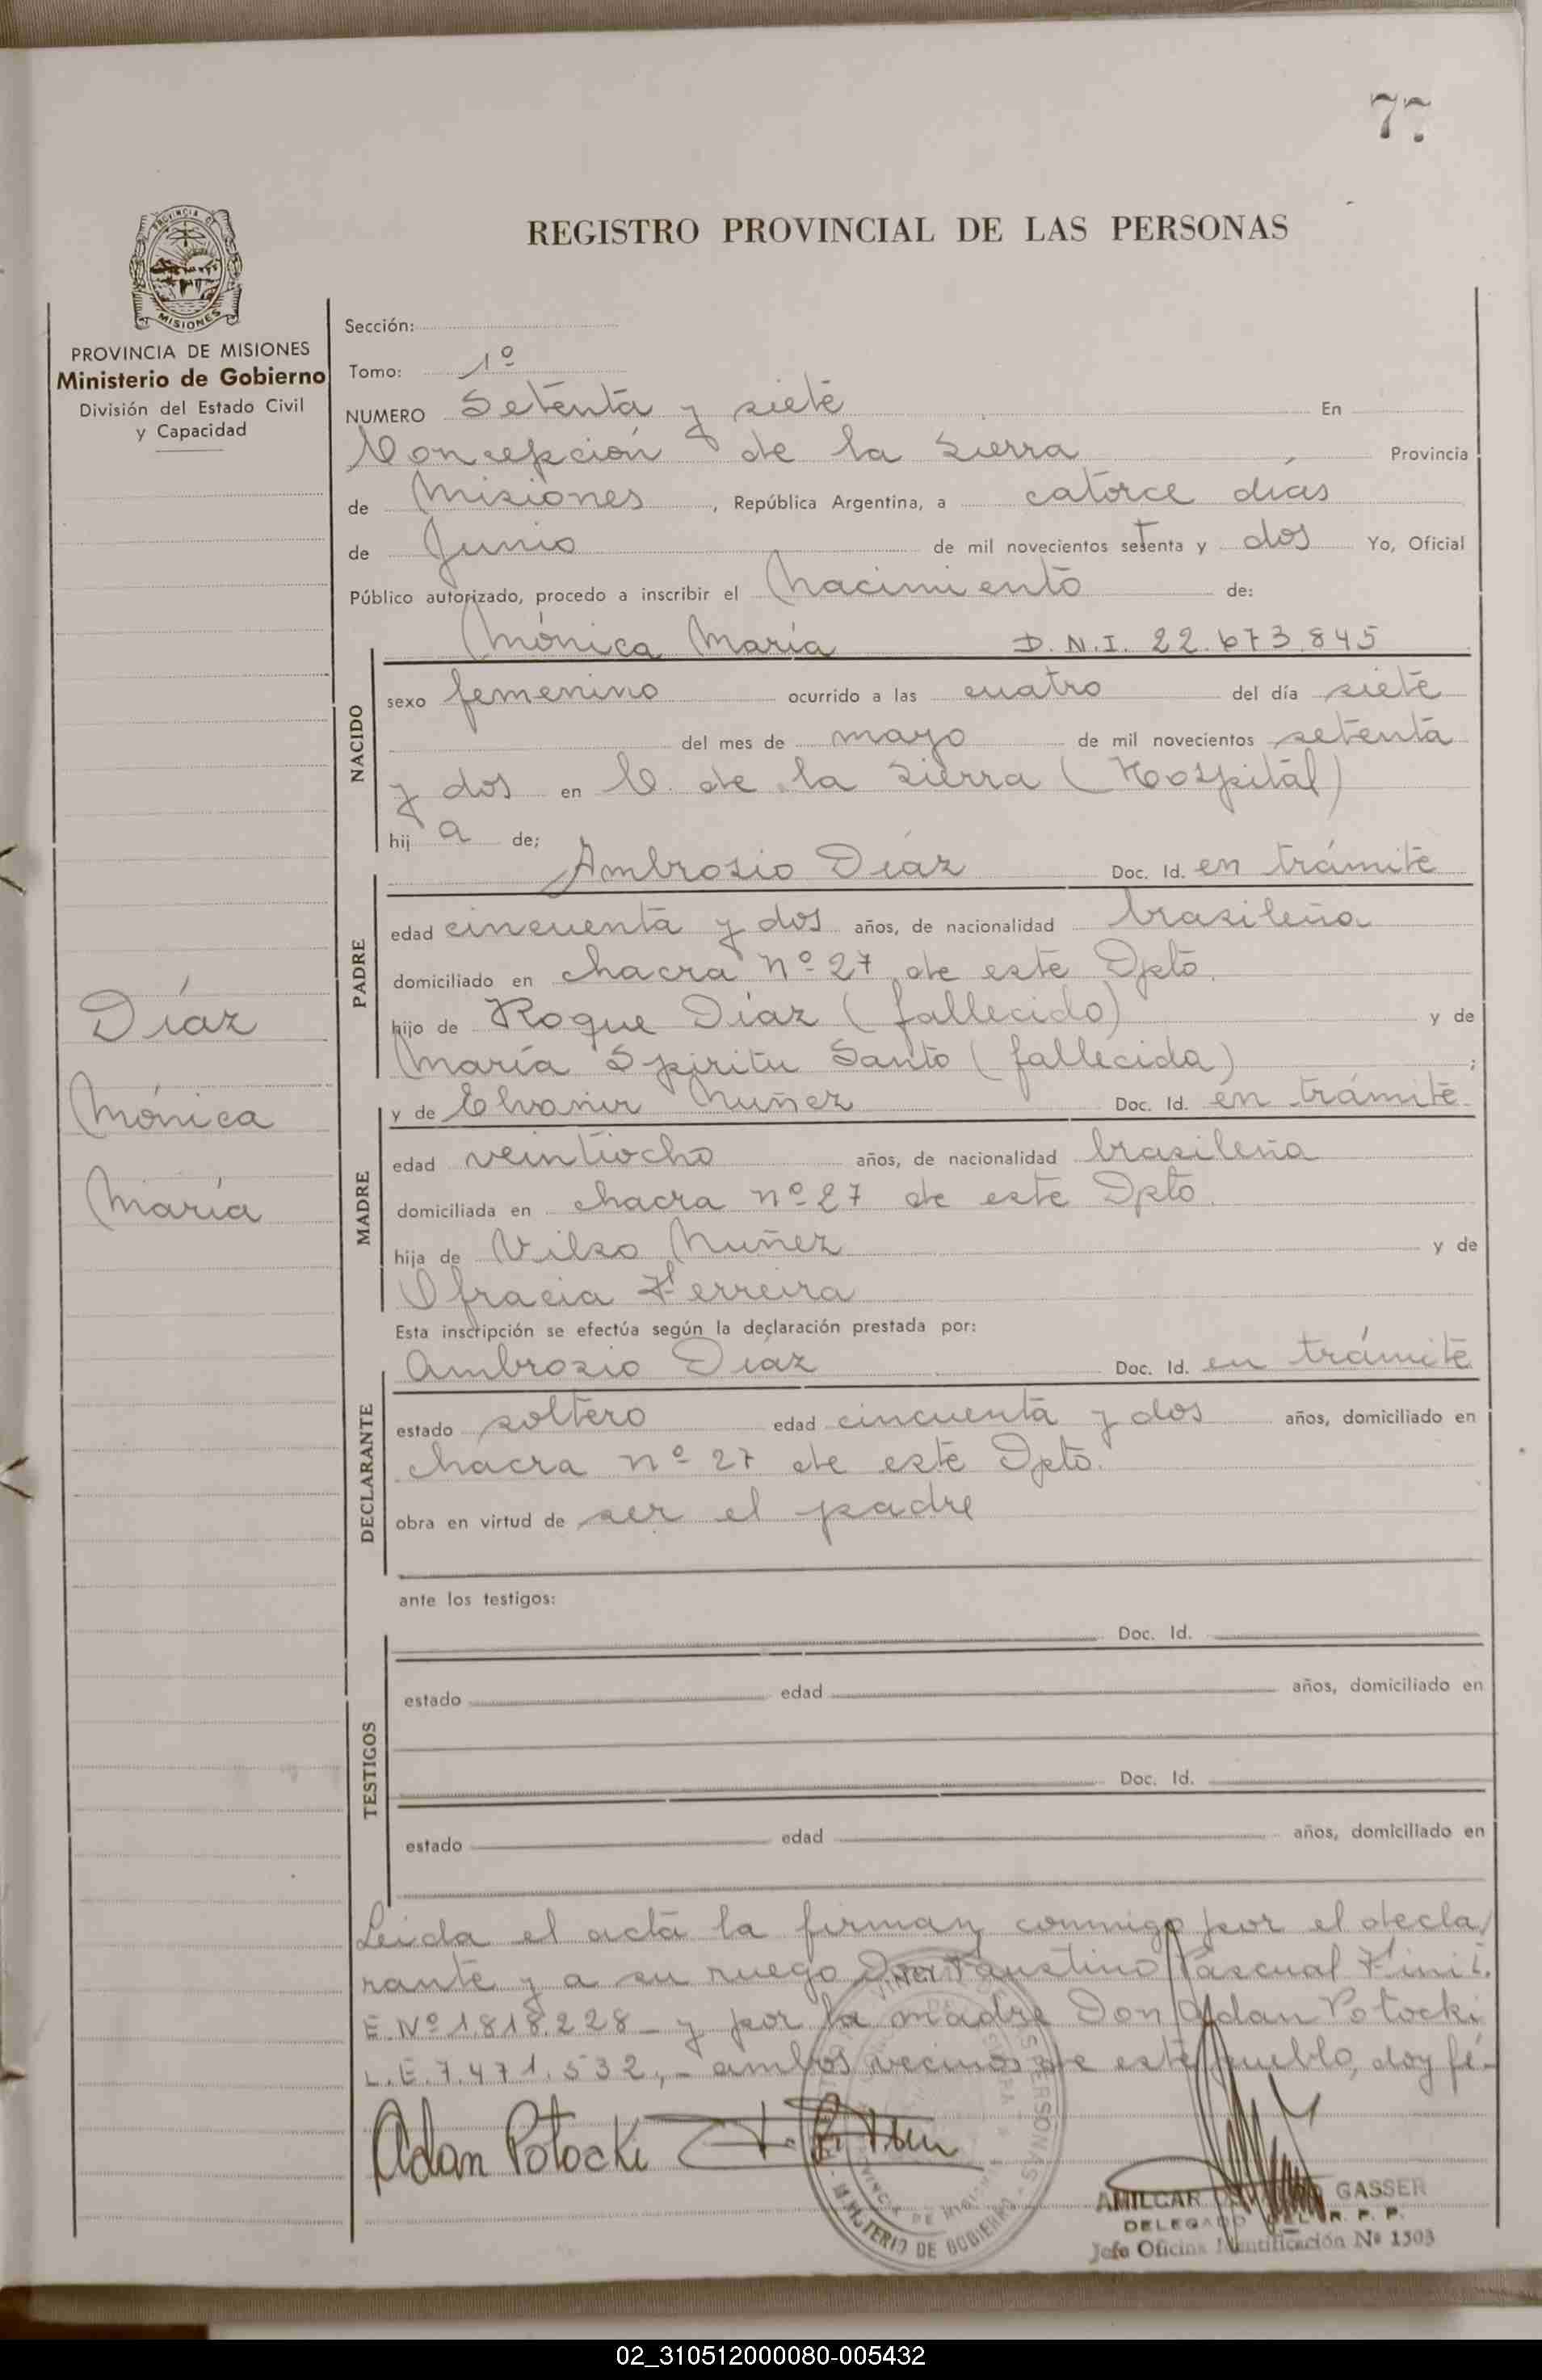 77
REGISTRO PROVINCIAL DE LAS PERSONAS
MISIONES
PROVINCIA DE MISIONES
Ministerio de Gobierno
División del Estado Civil
y Capacidad
Díaz
Mónica
María
Sección:
Tomo: 1º
NUMERO Setenta y siete En
Concepción de la Sierra Provincia
de Misiones, República Argentina, a catorce días
de Junio de mil novecientos setenta y dos Yo, Oficial
Público autorizado, procedo a inscribir el nacimiento de:
Mónica María D.N.I. 22.673.845
NACIDO
sexo femenino ocurrido a las cuatro del día siete
del mes de mayo de mil novecientos setenta
y dos en C. de la Sierra (Hospital)
hij a de;
Ambrosio Díaz Doc. Id. en trámite
PADRE
edad cincuenta y dos años, de nacionalidad brasileña
domiciliado en chacra nº 27 de este Dpto.
hijo de Roque Díaz (fallecido) y de
María Spiritu Santo (fallecida) ;
y de Nuñez Doc. Id. en trámite
MADRE
edad veintiocho años, de nacionalidad brasileña
domiciliada en chacra nº 27 de este Dpto.
hija de Vilso Nuñez y de
Ofracia Ferreira
Esta inscripción se efectúa según la declaración prestada por:
Ambrosio Díaz Doc. Id. en trámite
DECLARANTE
estado soltero edad cincuenta y dos años, domiciliado en
chacra nº 27 de este Dpto.
obra en virtud de ser el padre
ante los testigos:
Doc. Id.
TESTIGOS
estado edad años, domiciliado en
Doc. Id.
estado edad años, domiciliado en
Leida el acta la firman conmigo por el decla
rante y a su ruego Don Faustino Pascual Fini L.
E. Nº 1.818.228 - y por la madre Don Adan Potocki
L.E. 7.471.532,- ambos vecinos de este pueblo, doy fé-
Adan Potocki
MINISTERIO DE GOBIERNO
AMILCAR GASSER
DELEGADO DEL R. P. P.
Jefe Oficina Identificación Nº 1503
02_310512000080-005432